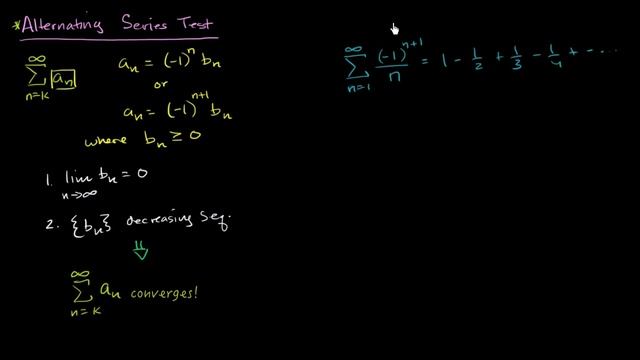 *Alternating Series Test
∞ ∑ n=k a_n
a_n = (-1)^n b_n
or
a_n = (-1)^{n+1} b_n
where b_n ≥ 0
1. lim n→∞ b_n = 0
2. {b_n} decreasing seq.
⇓
∞ ∑ n=k a_n converges!
∞ ∑ n=1 (-1)^{n+1}/n = 1 - 1/2 + 1/3 - 1/4 + - ...